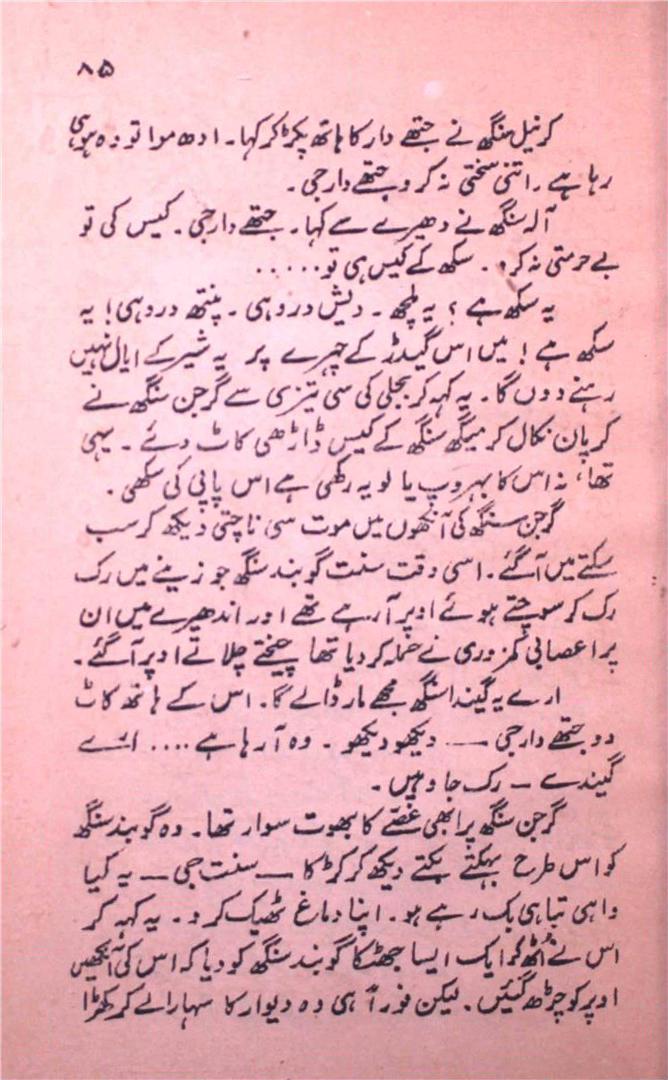 ۸۵
کرنیل سنگھ نے جتھے دار کا ہاتھ پکڑ کر کہا۔ ادھ موا تو وہ ہو ہی
رہا ہے۔ اتنی سختی نہ کرو جتھے دار جی۔
آلہ سنگھ نے دھیرے سے کہا۔ جتھے دار جی۔ کیس کی تو
بے حرمتی نہ کرو۔ سکھ کے کیس ہی تو.....
یہ سکھ ہے؟ یہ ملیچھ۔ دیش دروہی۔ پنتھ دروہی! یہ
سکھ ہے! میں اس گیدڑ کے چہرے پر یہ شیر کے ایال نہیں
رہنے دوں گا۔ یہ کہہ کر بجلی کی سی تیزی سے گرجن سنگھ نے
کرپان نکال کر میگھ سنگھ کے کیس ڈاڑھی کاٹ دئے۔ یہی
تھا، نہ اس کا بہروپ یا لو یہ رکھی ہے اس پاپی کی سکھی۔
گرجن سنگھ کی آنکھوں میں موت سی ناچتی دیکھ کر سب
سکتے میں آ گئے۔ اسی وقت سنت گوبند سنگھ جو زینے میں رک
رک کر سوچتے ہوئے اوپر آ رہے تھے اور اندھیرے میں ان
پر اعصابی کمزوری نے حملہ کر دیا تھا چیختے چلاتے اوپر آ گئے۔
ارے یہ گیندا سنگھ مجھے مار ڈالے گا۔ اس کے ہاتھ کاٹ
دو جتھے دار جی — دیکھو دیکھو۔ وہ آ رہا ہے.... ارے
گیندے — رک جا وہیں۔
گرجن سنگھ پر ابھی غصے کا بھوت سوار تھا۔ وہ گوبند سنگھ
کو اس طرح بہکتے بکتے دیکھ کر کڑکا — سنت جی — یہ کیا
واہی تباہی بک رہے ہو۔ اپنا دماغ ٹھیک کرو۔ یہ کہہ کر
اس نے اُٹھ کر ایک ایسا جھٹکا گوبند سنگھ کو دیا کہ اس کی آنکھیں
اوپر کو چڑھ گئیں۔ لیکن فوراً ہی وہ دیوار کا سہارا لے کر کھڑا